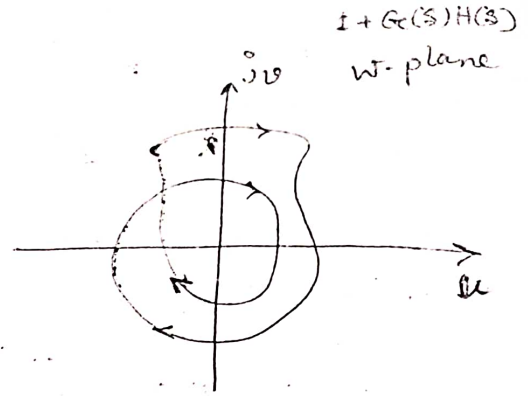 1 + G(S) H(S)
W-plane
jv
u